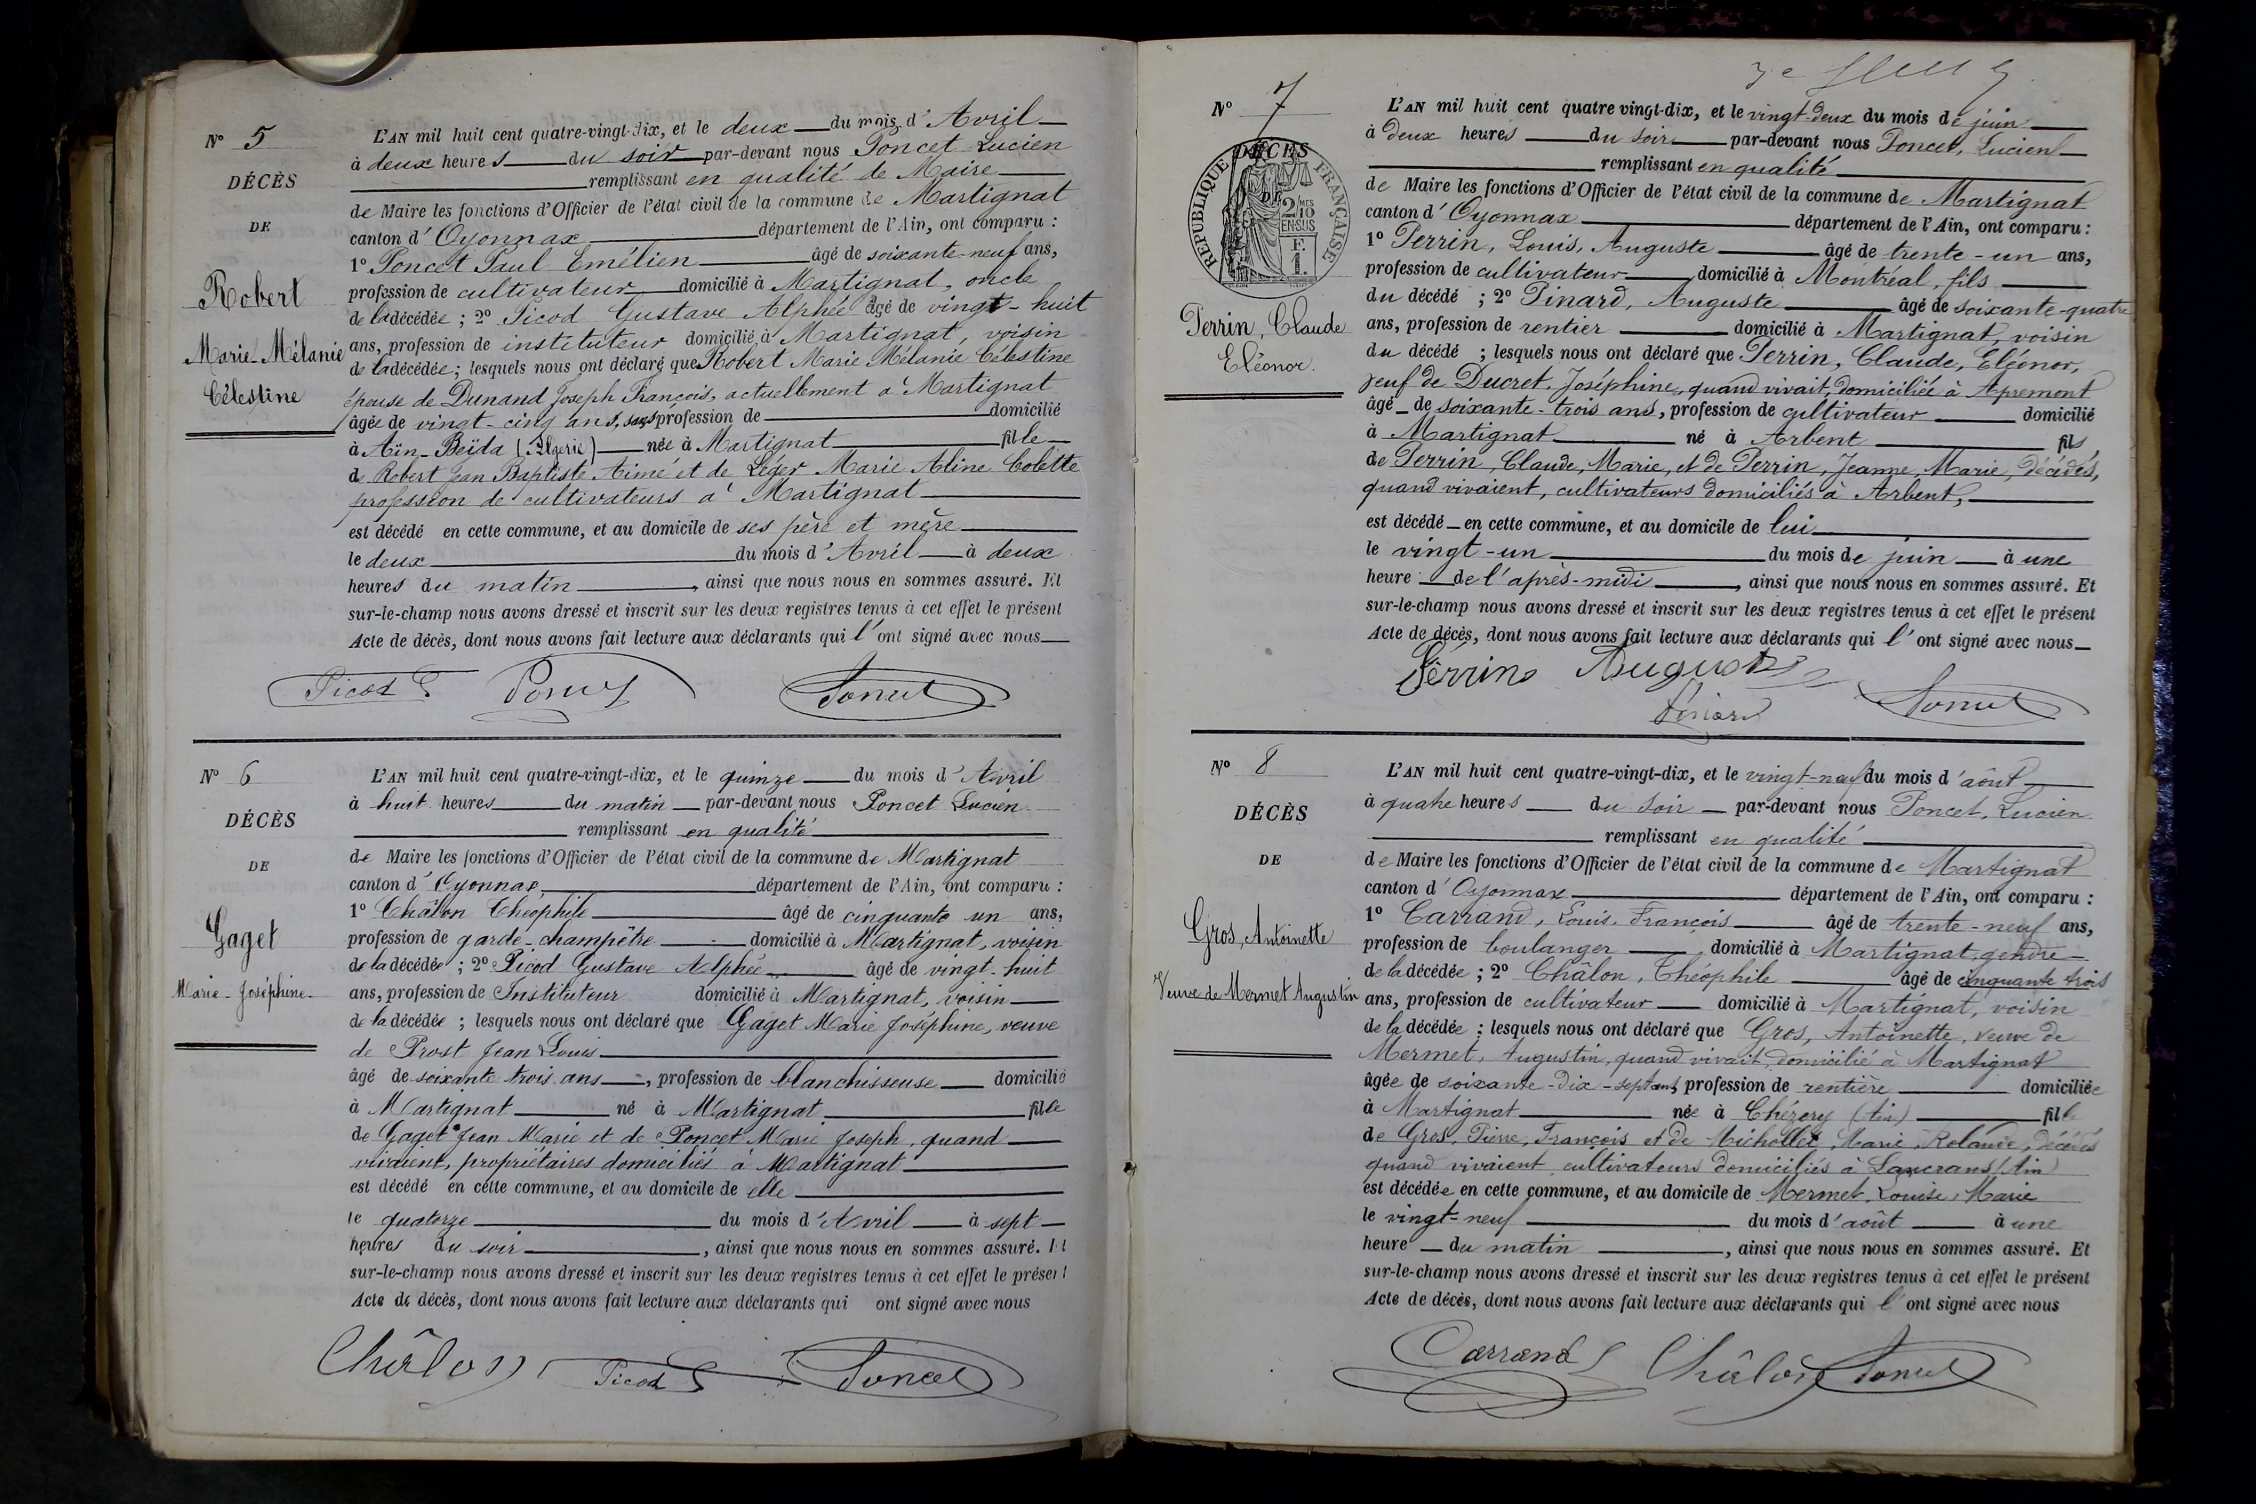 N° 5
DÉCÈS
DE
Robert
Marie-Mélanie
Célestine
L'AN mil huit cent quatre-vingt-dix, et le deux du mois d'Avril
à deux heures du soir par-devant nous Poncet Lucien
remplissant en qualité de Maire
de Maire les fonctions d'Officier de l'état civil de la commune de Martignat
canton d'Oyonnax département de l'Ain, ont comparu :
1° Poncet Paul Emélien âgé de soixante-neuf ans,
profession de cultivateur domicilié à Martignat, oncle
de la décédée ; 2° Picod Gustave Alphée âgé de vingt-huit
ans, profession de instituteur domicilié à Martignat, voisin
de la décédée ; lesquels nous ont déclaré que Robert Marie Mélanie Célestine
épouse de Dunand Joseph François, actuellement à Martignat
âgée de vingt-cinq ans, sans profession de domicilié
à Aïn-Beïda (Algérie) née à Martignat fille
de Robert Jean Baptiste Aimé et de Léger Marie Aline Colette
profession de cultivateurs à Martignat
est décédé en cette commune, et au domicile de ses père et mère
le deux du mois d'Avril à deux
heures du matin, ainsi que nous nous en sommes assuré. Et
sur-le-champ nous avons dressé et inscrit sur les deux registres tenus à cet effet le présent
Acte de décès, dont nous avons fait lecture aux déclarants qui l'ont signé avec nous
Picod G Poncet Poncet
N° 6
DÉCÈS
DE
Gaget
Marie-Joséphine
L'AN mil huit cent quatre-vingt-dix, et le quinze du mois d'Avril
à huit heures du matin par-devant nous Poncet Lucien
remplissant en qualité
de Maire les fonctions d'Officier de l'état civil de la commune de Martignat
canton d'Oyonnax département de l'Ain, ont comparu :
1° Châlon Théophile âgé de cinquante un ans,
profession de garde-champêtre domicilié à Martignat, voisin
de la décédée ; 2° Picod Gustave Alphée âgé de vingt-huit
ans, profession de Instituteur domicilié à Martignat, voisin
de la décédée ; lesquels nous ont déclaré que Gaget Marie Joséphine, veuve
de Prost Jean Louis
âgé de soixante trois ans, profession de blanchisseuse domicilié
à Martignat né à Martignat fille
de Gaget Jean Marie et de Poncet Marie Joseph, quand
vivaient, propriétaires domiciliés à Martignat
est décédé en cette commune, et au domicile de elle
le quatorze du mois d'Avril à sept
heures du soir, ainsi que nous nous en sommes assuré. Et
sur-le-champ nous avons dressé et inscrit sur les deux registres tenus à cet effet le présent
Acte de décès, dont nous avons fait lecture aux déclarants qui ont signé avec nous
Châlon Picod G Poncet
N° 7
DÉCÈS
DE
RÉPUBLIQUE FRANÇAISE
2/10 MES
EN SUS
F.
1.
Perrin, Claude
Eléonor.
L'AN mil huit cent quatre vingt-dix, et le vingt-deux du mois de juin
à deux heures du soir par-devant nous Poncet, Lucien
remplissant en qualité
de Maire les fonctions d'Officier de l'état civil de la commune de Martignat
canton d'Oyonnax département de l'Ain, ont comparu :
1° Perrin, Louis, Auguste âgé de trente-un ans,
profession de cultivateur domicilié à Montréal, fils
du décédé ; 2° Pinard, Auguste âgé de soixante-quatre
ans, profession de rentier domicilié à Martignat, voisin
du décédé ; lesquels nous ont déclaré que Perrin, Claude, Eléonor,
veuf de Ducret, Joséphine, quand vivait, domiciliée à Apremont
âgé de soixante-trois ans, profession de cultivateur domicilié
à Martignat né à Arbent fils
de Perrin, Claude, Marie, et de Perrin, Jeanne, Marie, décédés,
quand vivaient, cultivateurs domiciliés à Arbent,
est décédé en cette commune, et au domicile de lui
le vingt-un du mois de juin à une
heure de l'après-midi, ainsi que nous nous en sommes assuré. Et
sur-le-champ nous avons dressé et inscrit sur les deux registres tenus à cet effet le présent
Acte de décès, dont nous avons fait lecture aux déclarants qui l'ont signé avec nous
Perrin Auguste Poncet
Pinard
N° 8
DÉCÈS
DE
Gros, Antoinette
Veuve de Mermet Augustin
L'AN mil huit cent quatre-vingt-dix, et le vingt-neuf du mois d'août
à quatre heures du soir par-devant nous Poncet, Lucien
remplissant en qualité
de Maire les fonctions d'Officier de l'état civil de la commune de Martignat
canton d'Oyonnax département de l'Ain, ont comparu :
1° Carrand, Louis, François âgé de trente-neuf ans,
profession de boulanger domicilié à Martignat, gendre
de la décédée ; 2° Châlon, Théophile âgé de cinquante trois
ans, profession de cultivateur domicilié à Martignat, voisin
de la décédée ; lesquels nous ont déclaré que Gros, Antoinette, veuve de
Mermet, Augustin, quand vivait, domicilié à Martignat
âgée de soixante-dix-sept ans, profession de rentière domiciliée
à Martignat née à Chézery (Ain) fille
de Gros, Pierre, François et de Michollet, Marie, Rolande, décédés
quand vivaient cultivateurs domiciliés à Lancrans (Ain)
est décédée en cette commune, et au domicile de Mermet, Louise, Marie
le vingt-neuf du mois d'août à une
heure du matin, ainsi que nous nous en sommes assuré. Et
sur-le-champ nous avons dressé et inscrit sur les deux registres tenus à cet effet le présent
Acte de décès, dont nous avons fait lecture aux déclarants qui l'ont signé avec nous
Carrand Châlon Poncet